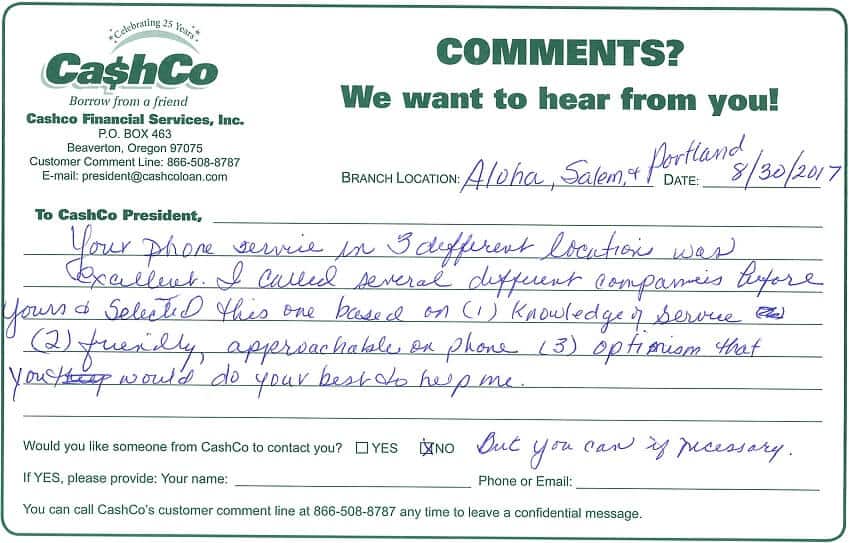 Celebrating 25 Years
Ca$hCo
Borrow from a friend
Cashco Financial Services, Inc.
P.O. BOX 463
Beaverton, Oregon 97075
Customer Comment Line: 866-508-8787
E-mail: president@cashcoloan.com
COMMENTS?
We want to hear from you!
BRANCH LOCATION: Aloha, Salem, & Portland DATE: 8/30/2017
To CashCo President,
Your phone service in 3 different locations was
excellent. I called several different companies before
yours & selected this one based on (1) knowledge of service
(2) friendly, approachable on phone (3) optimism that
you would do your best to help me.
Would you like someone from CashCo to contact you? ☐ YES ☒ NO But you can if necessary.
If YES, please provide: Your name: Phone or Email:
You can call CashCo's customer comment line at 866-508-8787 any time to leave a confidential message.